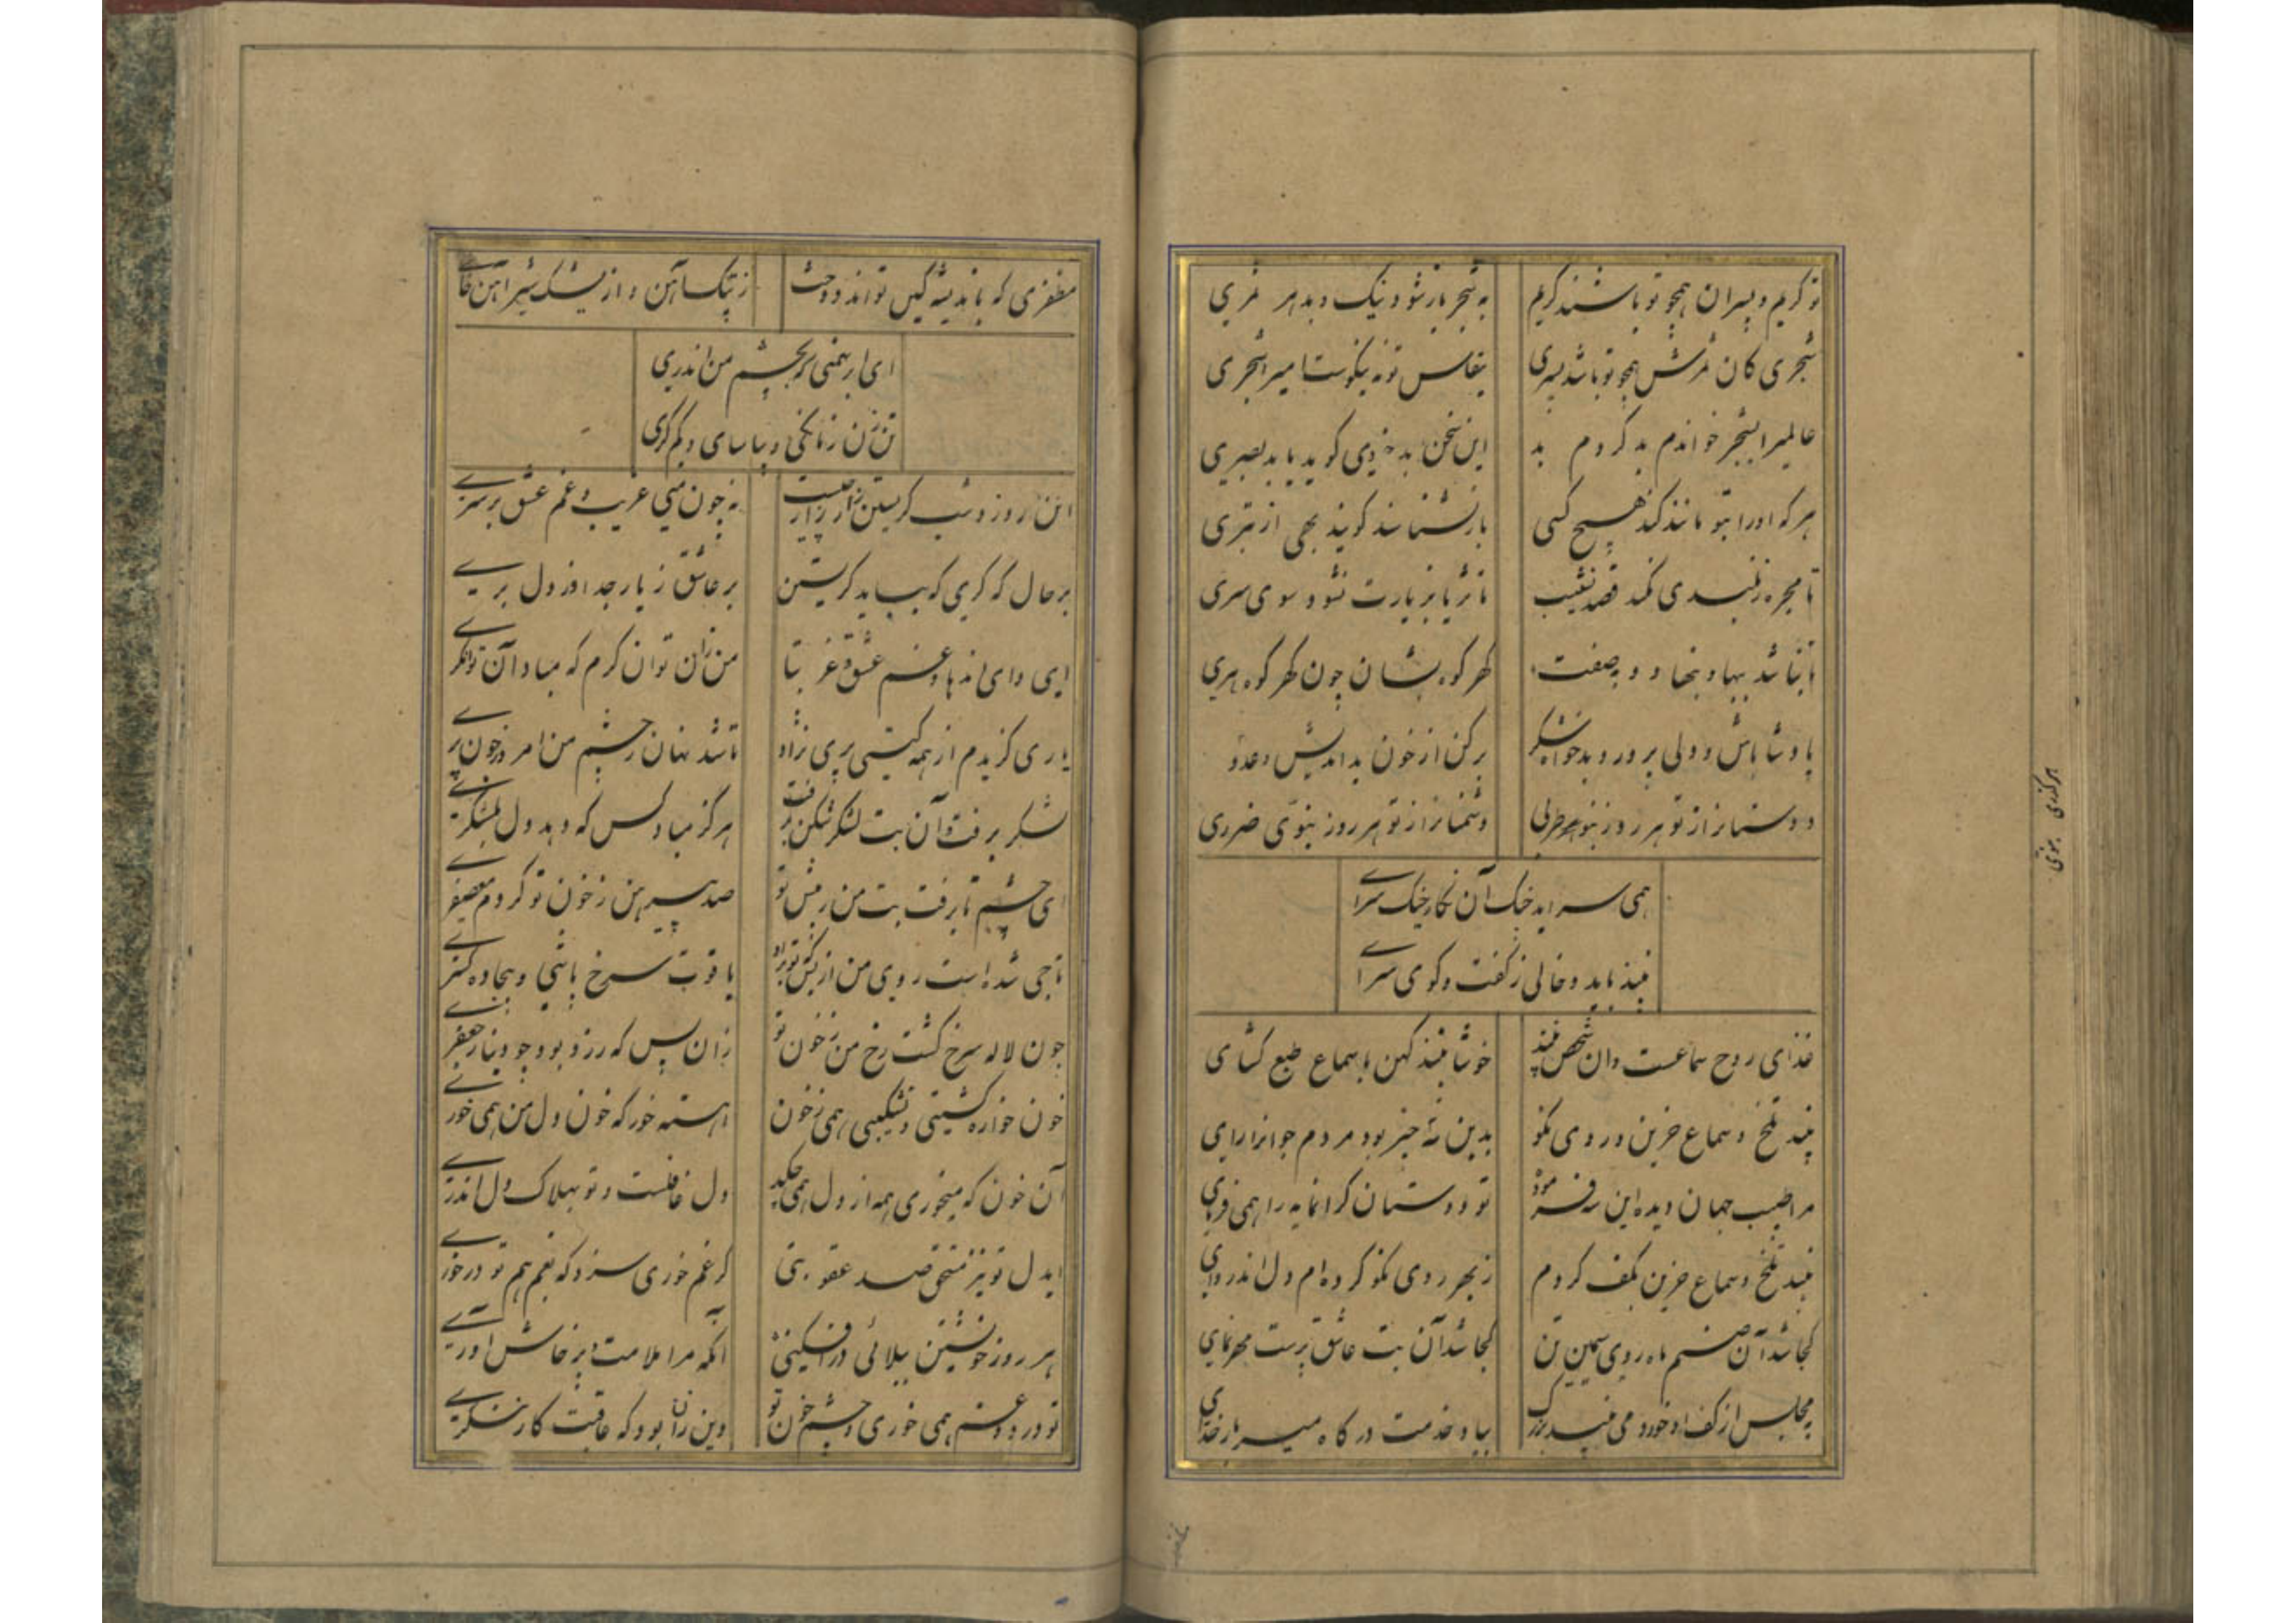 تو کریم و پسران همچو تو باشند کریم
به شجر بازشود نیک و بد هر ثمری
شجری کان ثمرش همچو تو باشد پسری
بقیاس تو نه نیکوست امیرا شجری
عالمیرا بشجر خواندم بد کردم بد
این سخن بدخردی کوید یا بد بصیری
هر که او را بتو مانند کند هیچ کسی
بازنشناسد کویند بهی از بتری
تا مجره ز بلندی نکند قصد نشیب
تا ثریا بزیارت نشود سوی سری
تا نباشد ببها و بنهاد و بصفت
کهر کوه بشان چون کهر کوه هری
پادشا باش و ولی پرور و بدخواه شکر
برکن از خون بداندیش و عدو
دوستانرا از تو هر روز بنوی طربی
دشمنانرا از تو هر روز بنوی ضرری
هر کذری بنوی
همی سراید چنک آن نکار چنک سرای
نبیذ باید و خالی ز کفت و کوی سرای
غذای روح سماعست و آن شخص نبیذ
خوشا نبیذ کهن با سماع طبع کشای
نبیذ تلخ و سماع حزین و روی نکو
بدین سه چیز بود مردم جوانرا رای
مرا طبیب جهان دیده این سه فرمود
تو دوستان کرانمایه را همی فرمای
نبیذ تلخ و سماع حزین بکف کردم
ز بهر روی نکو کرده ام دل اندر وای
کجا شد آن صنم ماه روی سیمین تن
کجا شد آن بت عاشق پرست مهر نمای
به مجلس از کف او خوردمی نبیذ بزرک
بیاد خدمت درکاه میر بارخدای
مظفری که باندیشه کین تواند دوخت
ز پتک آهن و از یشک شیر آهن خای
ای ابر بهمنی نه بچشم من اندری
تن زن زمانکی و بیاسای و کم کری
این روز و شب کریستن زار زار چیست
نه چون منی غریب و غم عشق بر سری
بر حال که کری که بباید کریستن
بر عاشق ز یار جدا وز دل بری
ای وای اندها و غم عشق و غربتا
من زان توانکرم که مباد آن توانکری
یاری کزیدم از همه کیتی پری نژاد
تا شد نهان ز چشم من امروز چون پری
لشکر برفت و آن بت لشکر شکن برفت
هرکز مباد کس که دهد دل بلشکری
ای چشم تا برفت بت من ز پیش تو
صد پیرهن ز خون تو کردم معصفری
تاجی شده است روی من از بس که تو براو
یاقوت سرخ پاشی و بیجاده کستری
چون لاله سرخ کشت رخ من ز خون تو
زان پس که زرد بود چو دینار جعفری
خون خواره کشتی و نشکیبی همی ز خون
اهسته خور که خون دل من همی خوری
آن خون که میخوری همه از دل همی چکد
دل غافلست و تو بهلاک دل اندری
ایدل تو نیز مستحق صد عقوبتی
کر غم خوری سزد که بغم هم تو درخوری
هر روز خویشتن ببلائی درافکنی
انکه مرا ملامت و پرخاش آوری
تو درد و غم همی خوری و چشم خون تو
وین زان بود که عاقبت کار ننکری